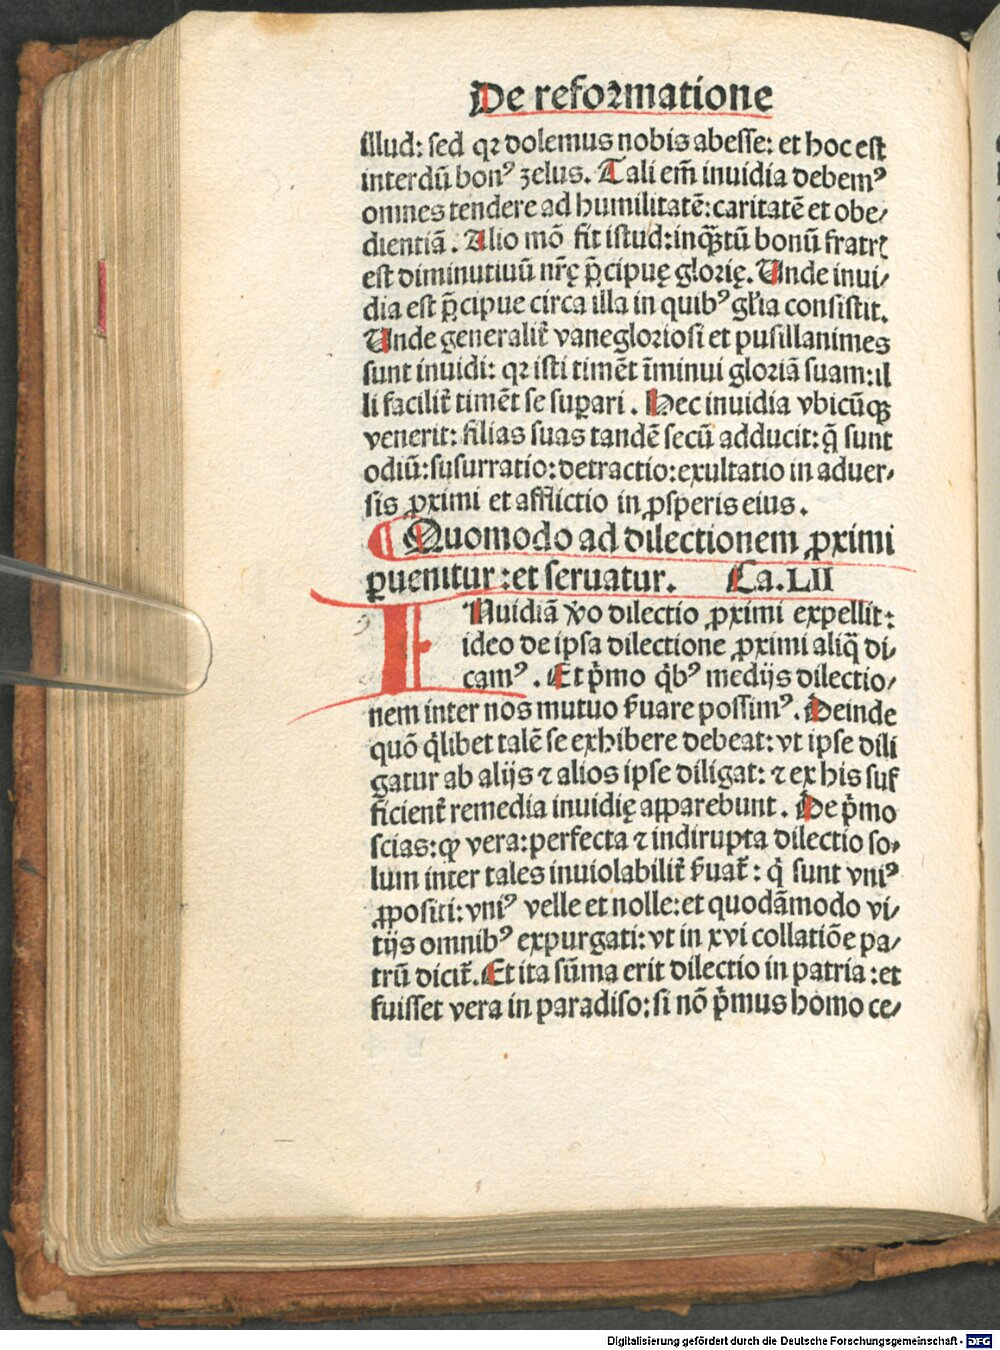 De reformatione
illud: sed qꝛ dolemus nobis abesse: et hoc est
interdū bonꝰ zelus. Tali em̄ inuidia debemꝰ
omnes tendere ad humilitatē: caritatē et obe⸗
dientiā. Alio mō fit istud: inqꝫtū bonū fratrꝭ
est diminutiuū nr̄ę p̄cipuę glorię. Unde inui⸗
dia est p̄cipue circa illa in quibꝰ gl'ia consistit.
Unde generalit̄ vanegloriosi et pusillanimes
sunt inuidi: qꝛ isti timēt īminui gloriā suam: il
li facilit̄ timēt se suꝑari. Hec inuidia vbicūqꝫ
venerit: filias suas tandē secū adducit: q̄ sunt
odiū: susurratio: detractio: exultatio in aduer⸗
sis ꝓximi et afflictio in ꝓsperis eius.
Quomodo ad dilectionem ꝓximi
ꝑuenitur: et seruatur. Ca. LII
INuidiā v̄o dilectio ꝓximi expellit:
ideo de ipsa dilectione ꝓximi aliq̄ di⸗
camꝰ. Et p̄mo qͥbꝰ medijs dilectio⸗
nem inter nos mutuo ẜuare possimꝰ. Deinde
quō qͥlibet talē se exhibere debeat: vt ipse dili
gatur ab alijs ⁊ alios ipse diligat: ⁊ ex his suf
ficient̄ remedia inuidię apparebunt. De p̄mo
scias: ꝙ vera: perfecta ⁊ indirupta dilectio so⸗
lum inter tales inuiolabilit̄ ẜuat̄: qͥ sunt vniꝰ
ꝓpositi: vniꝰ velle et nolle: et quodāmodo vi⸗
tijs omnibꝰ expurgati: vt in xvi collatiōe pa⸗
trū dicit̄. Et ita sūma erit dilectio in patria: et
fuisset vera in paradiso: si nō p̄mus homo ce⸗
Digitalisierung gefördert durch die Deutsche Forschungsgemeinschaft - DFG